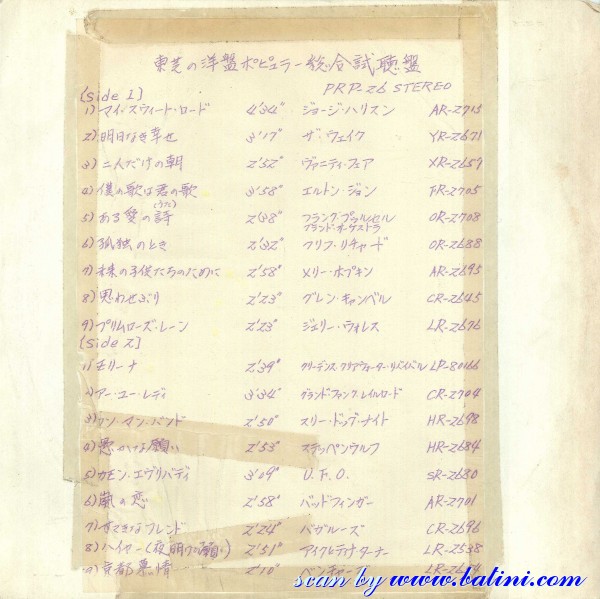 東芝の洋盤ポピュラー総合試聴盤
PRP-26 STEREO
(Side 1)
1) マイ・スウィート・ロード 4'34" ジョージ・ハリスン AR-2715
2) 明日なき幸せ 3'17" ザ・ウェイク YR-2671
3) 二人だけの朝 2'52" ヴァニティ・フェア XR-2659
4) 僕の歌は君の歌 3'58" エルトン・ジョン FR-2705
5) ある愛の詩(うた) 2'38" フランク・プゥルセル OR-2708
グランド・オーケストラ
6) 孤独のとき 2'32" クリフ・リチャード OR-2688
7) 未来の子供たちのために 2'58" メリー・ホプキン AR-2695
8) 思わせぶり 2'23" グレン・キャンベル CR-2645
9) プリムローズ・レーン 2'23" ジェリー・ウォレス LR-2676
[Side 2]
1) モリーナ 2'39" クリーデンス・クリアウォーター・リバイバル LP-80166
2) アー・ユー・レディ 3'34" グランド・ファンク・レイルロード CR-2704
3) ワン・マン・バンド 2'50" スリー・ドッグ・ナイト HR-2698
4) 愚かな願い 2'53" ステッペンウルフ HR-2684
5) カモン・エヴリバディ 3'09" U.F.O. SR-2680
6) 嵐の恋 2'58" バッドフィンガー AR-2701
7) すてきなフレンド 2'24" バガルーズ CR-2696
8) ハイヤー(夜明けの願い) 2'51" アイク&ティナ・ターナー LR-2538
9) 京都慕情 2'10" ベンチャーズ
scan by www.batini.com